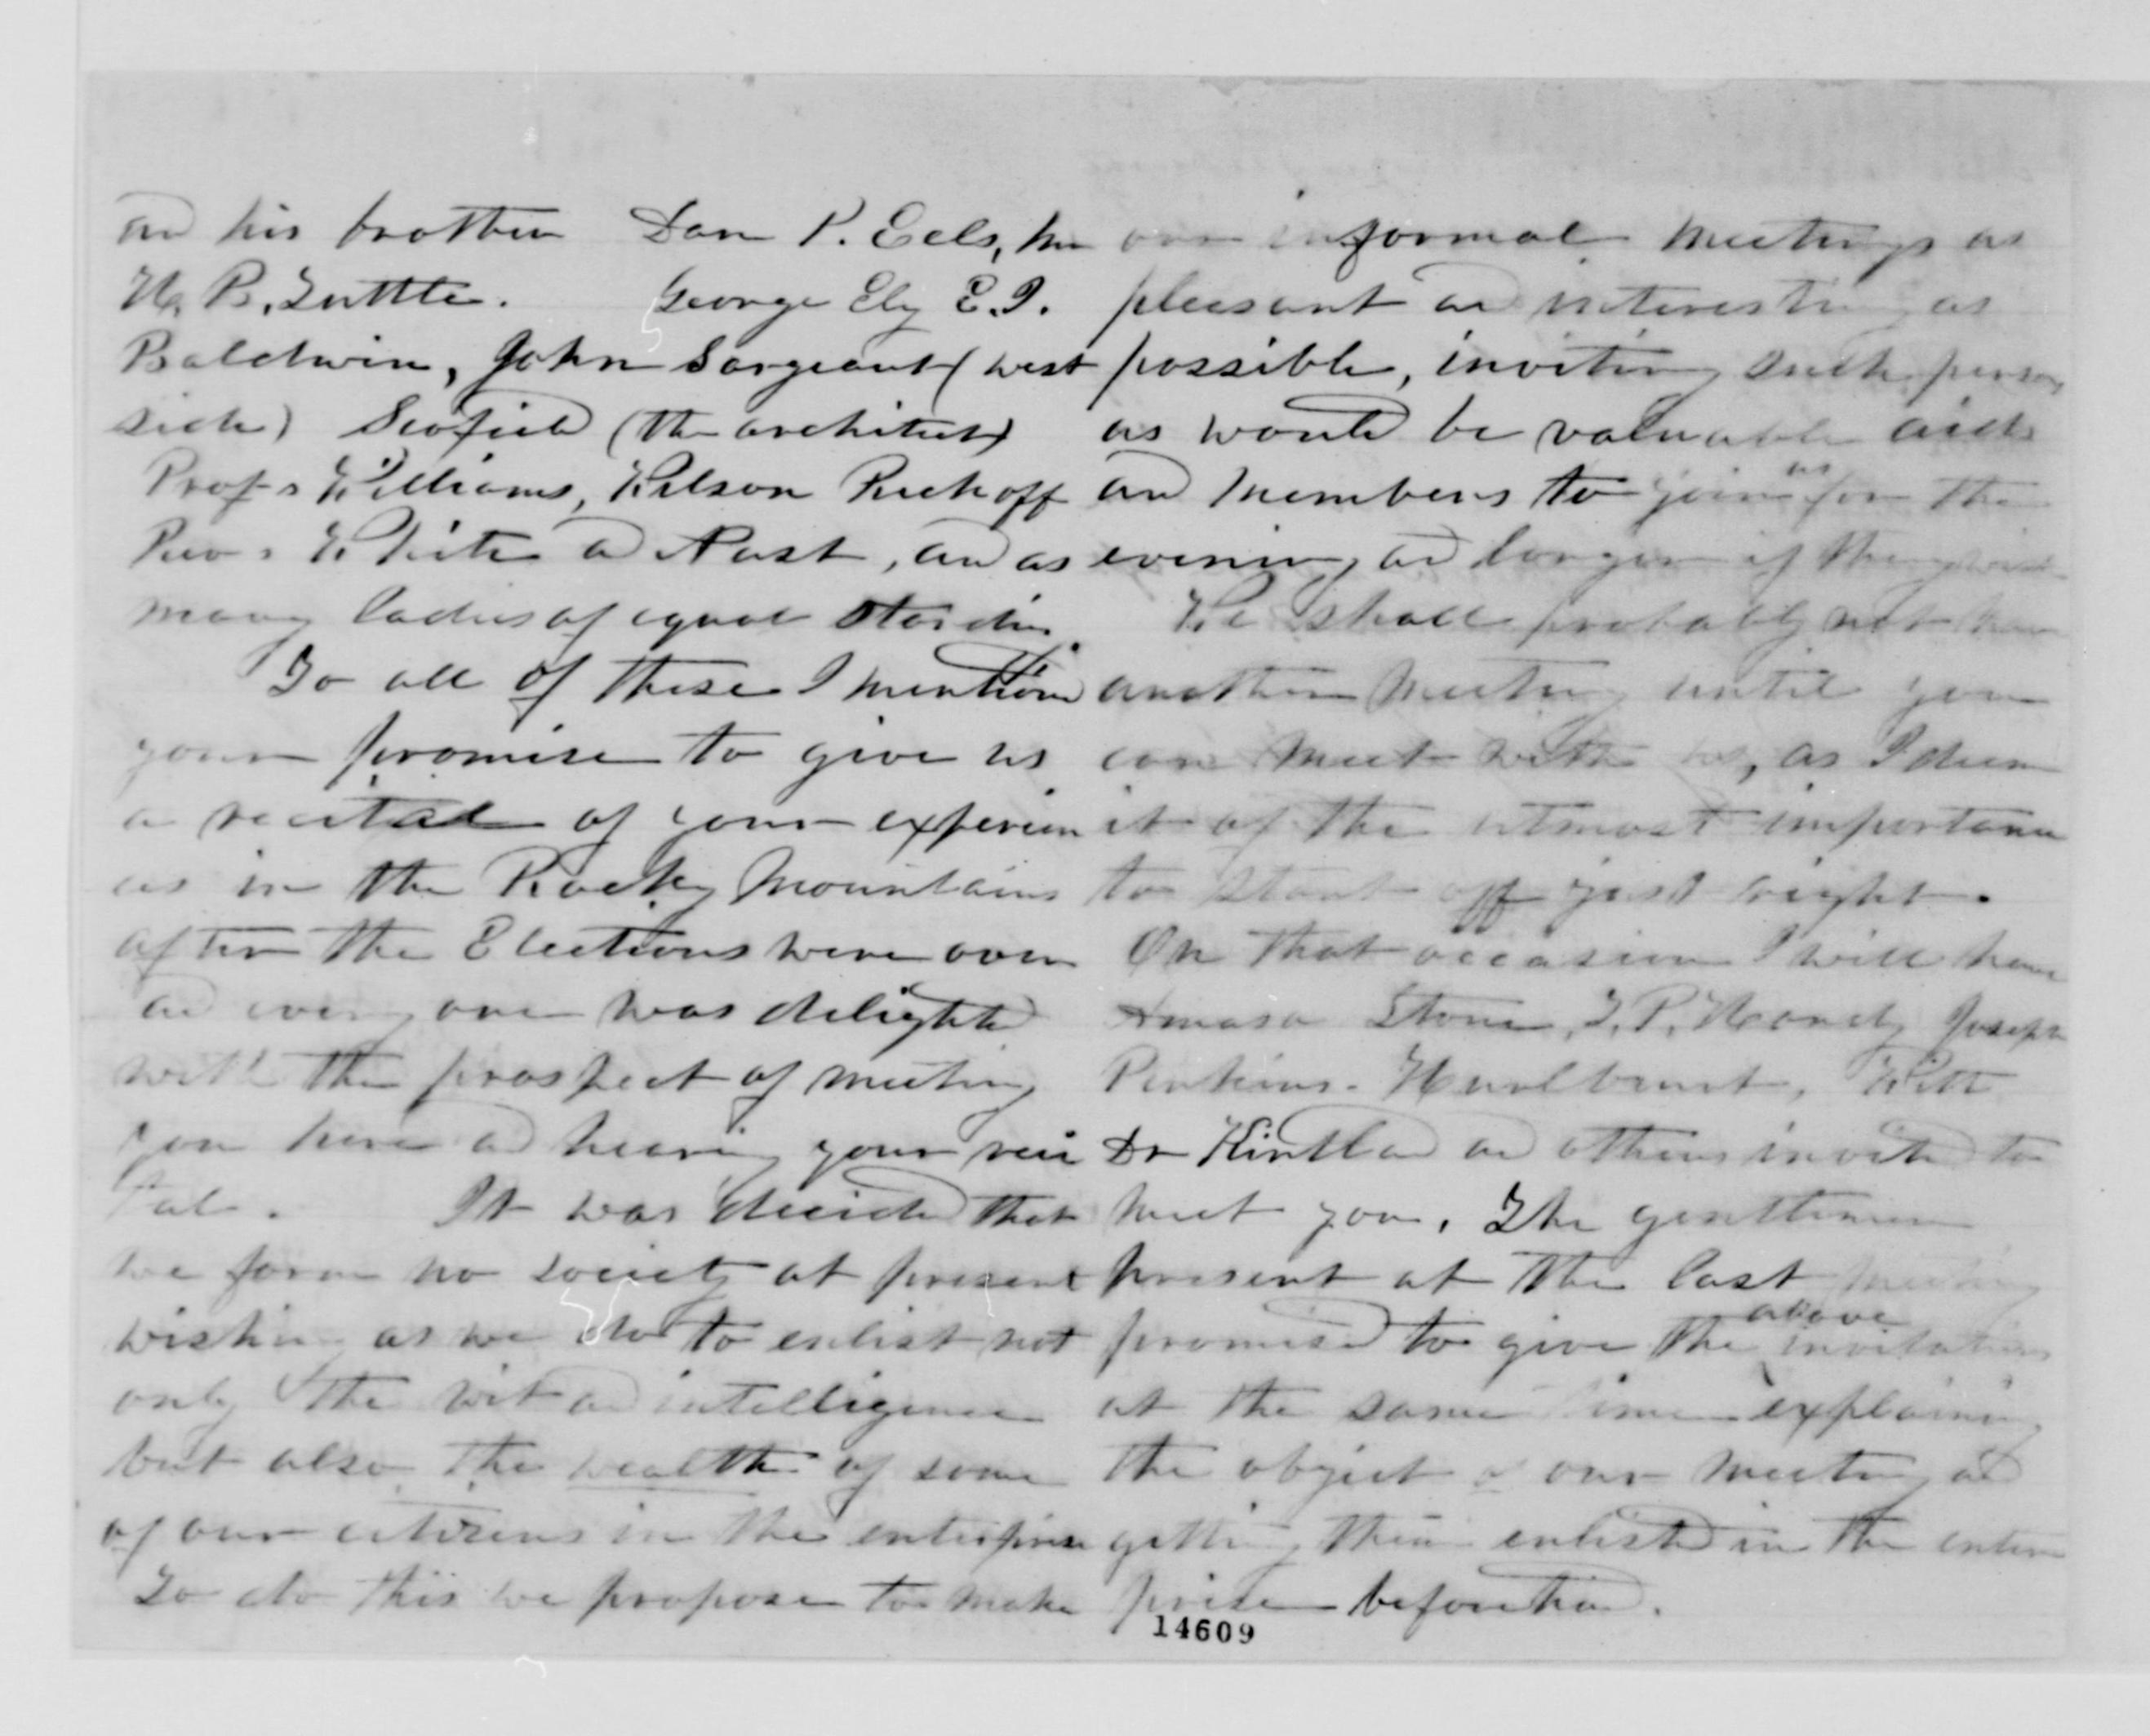 and his brother Dan P. Eels, her
H. B. Tuttle. George Ely E. I.
Baldwin, John Sargeant (west
side) Scofield (the architect)
Profs Williams, Wilson Rickoff
Revs White and Nast, and as
many ladies of equal standing.
To all of these I mentioned
your promise to give us
a recital of your experien
ces in the Rocky Mountains
after the Elections were over
and every one was delighted
with the prospect of meeting
you here and hearing your reci
tal. It was decided that
we form no society at present
wishing as we do to enlist not
only the wit and intelligence
but also the wealth of some
of our citizens in the enterprise
To do this we propose to make
our informal meetings as
pleasant and interesting as
possible, inviting such persons
as would be valuable aids
and members to join us for the
evening and longer if they wish
We shall probably not have
another meeting until you
can meet with us, as I deem
it of the utmost importance
to start off just right.
On that occasion I will have
Amasa Stone, T. P. Handy Joseph
Perkins - Hurlburt, Witt
Dr Kirtland and others invited to
meet you. The gentlemen
present at the last meeting
promised to give the above invitations
at the same time explaining
the object of our meeting and
getting them enlisted in the enter
prise beforehand.
14609